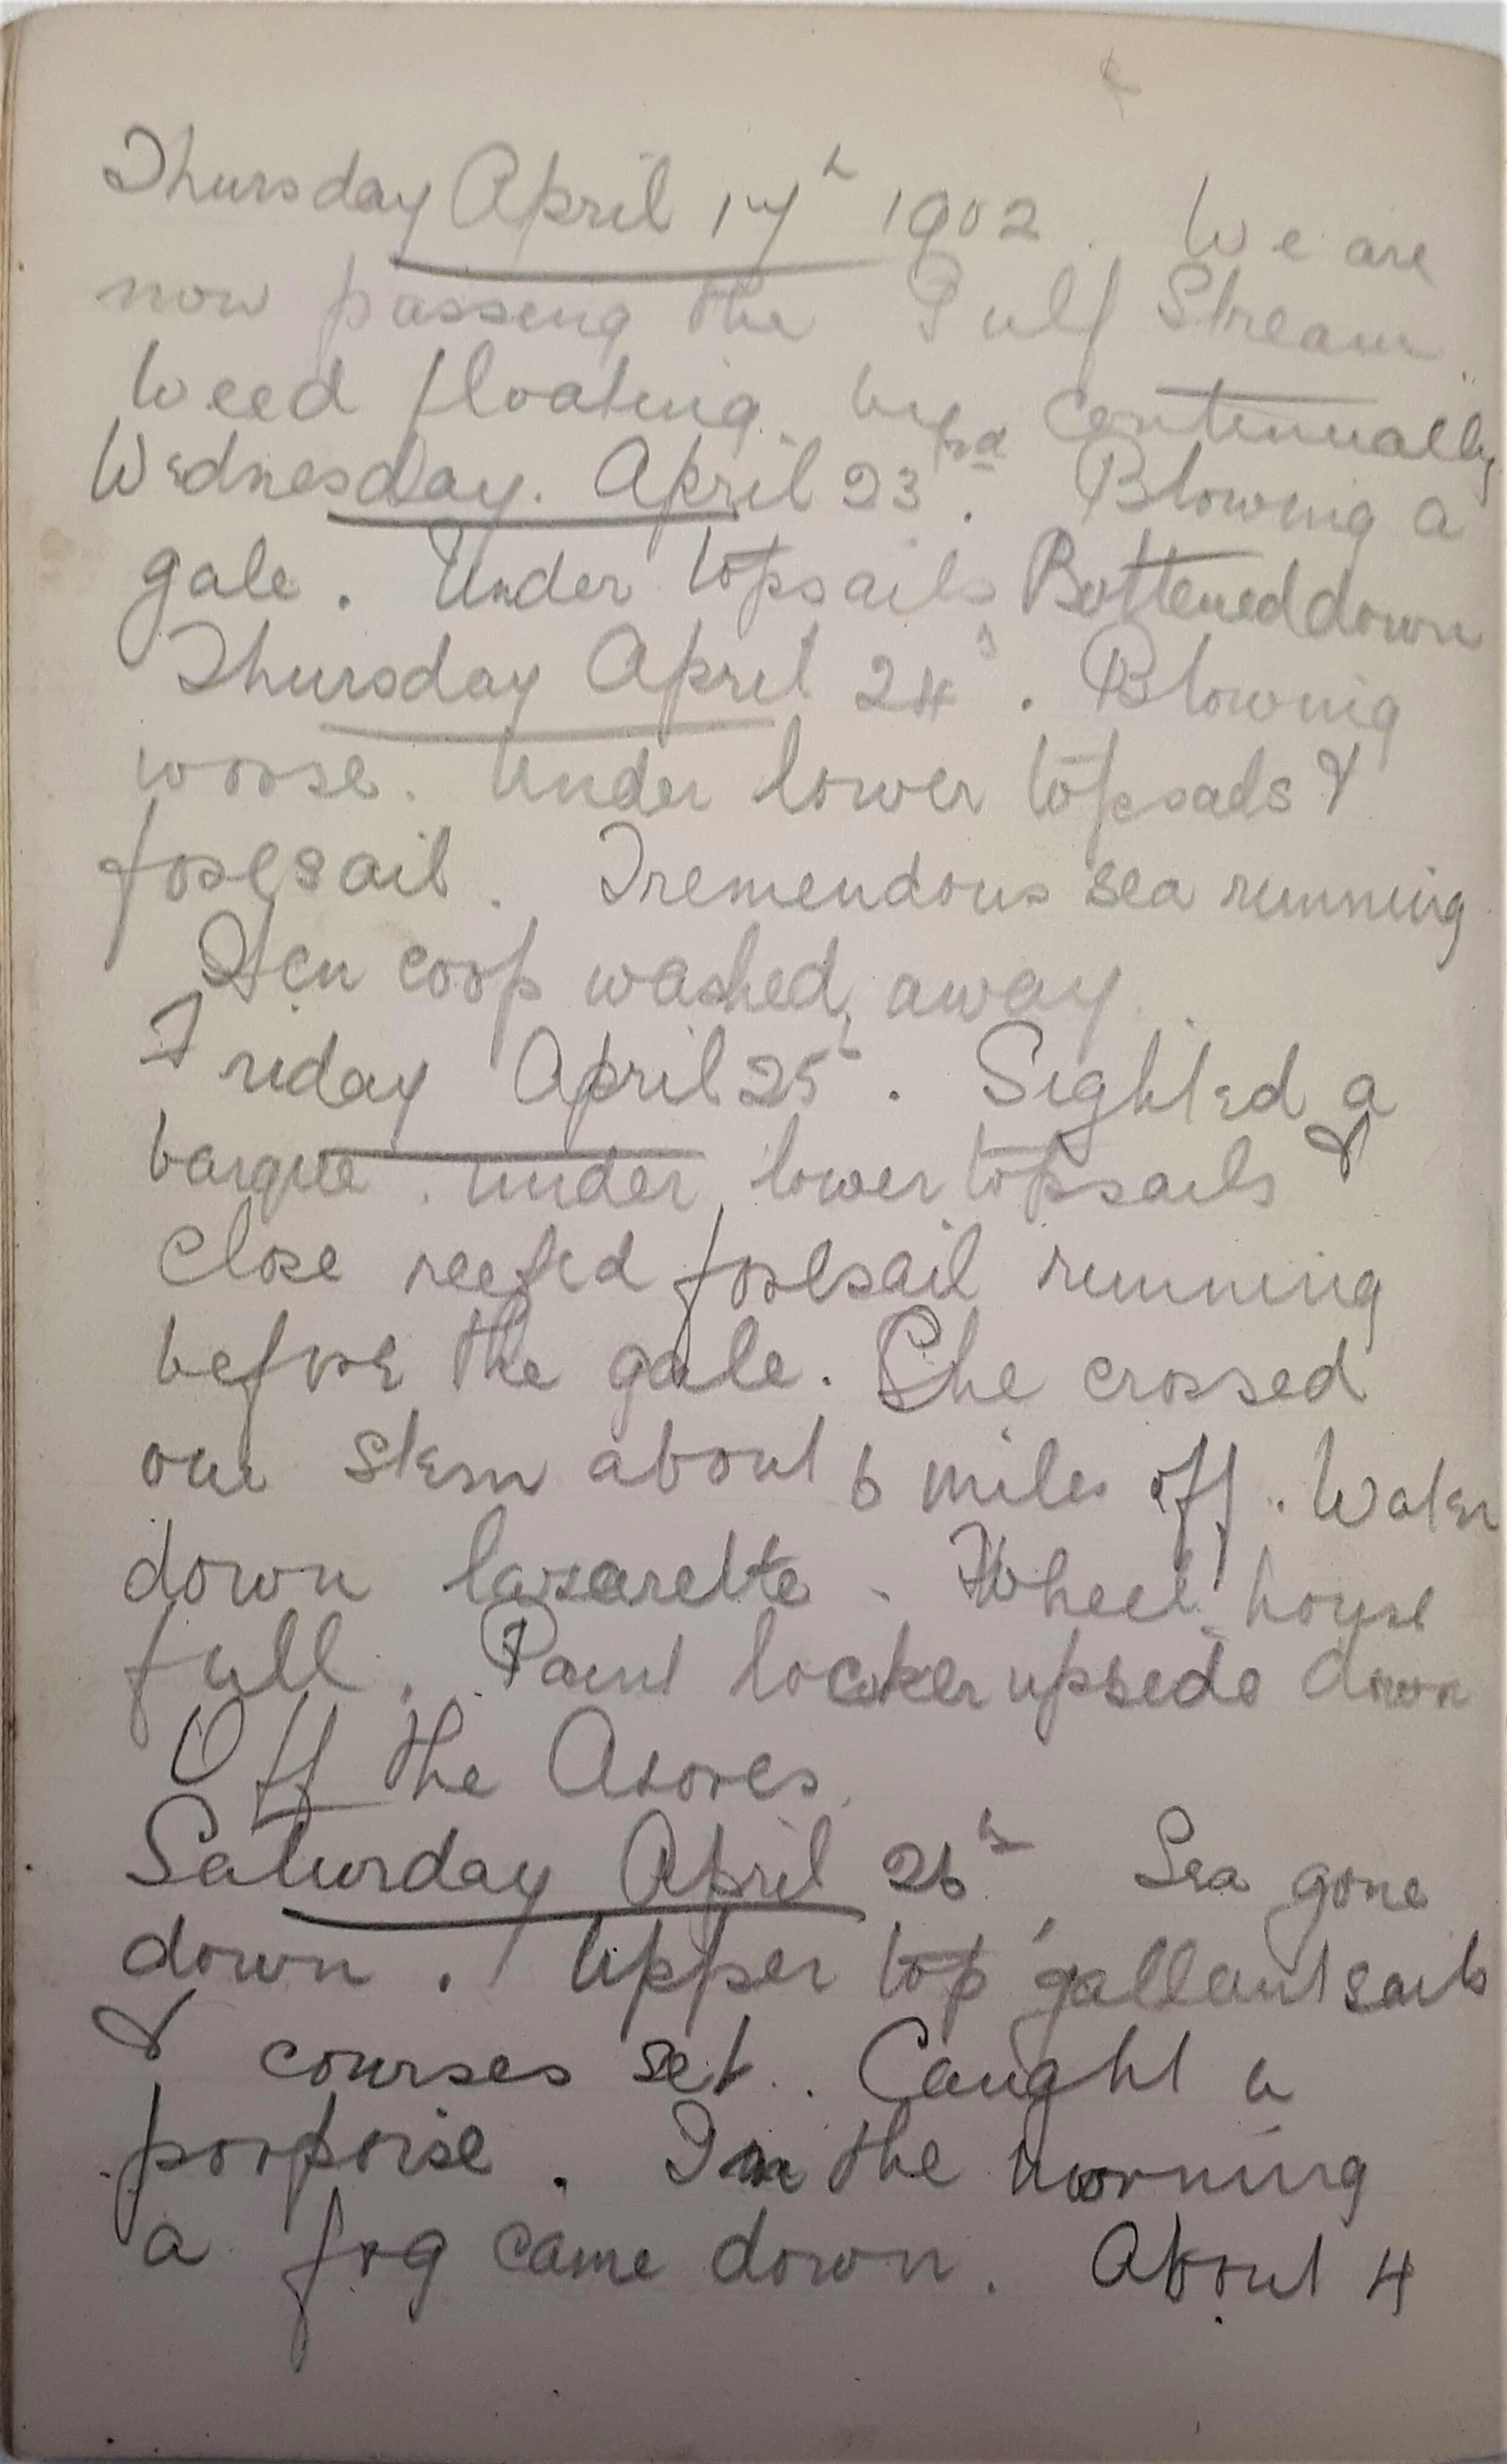 Thursday April 17th 1902. We are
now passing the Gulf Stream.
Weed floating by continually
Wednesday. April 23rd. Blowing a
gale. Under topsails Battened down
Thursday April 24th. Blowing
worse. Under lower topsails &
foresail. Tremendous sea running
Hen coop washed away.
Friday April 25th. Sighted a
barque under lower topsails &
close reefed foresail running
before the gale. She crossed
our stern about 6 miles off. Water
down lazarette. Wheel house
full. Paint locker upside down
Off the Azores.
Saturday April 26th Sea gone
down. Upper top gallant sails
& courses set. Caught a
porpoise. In the morning
a fog came down. About 4